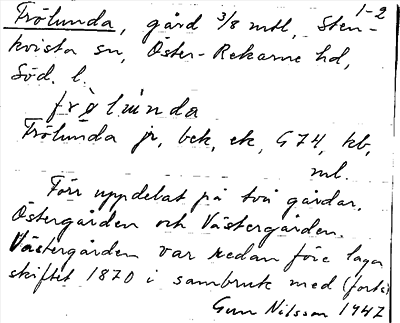 1-2
Frölunda, gård 3/8 mtl, Sten-
kvista sn, Öster-Rekarne hd,
Söd. l.
frø̀lùnda
Frölunda jr, bek, ek, G74, kb,
ml.
Förr uppdelat på två gårdar,
Östergården och Västergården.
Västergården var redan före laga
skiftet 1870 i sambruk med (forts)
Gun Nilsson 1947